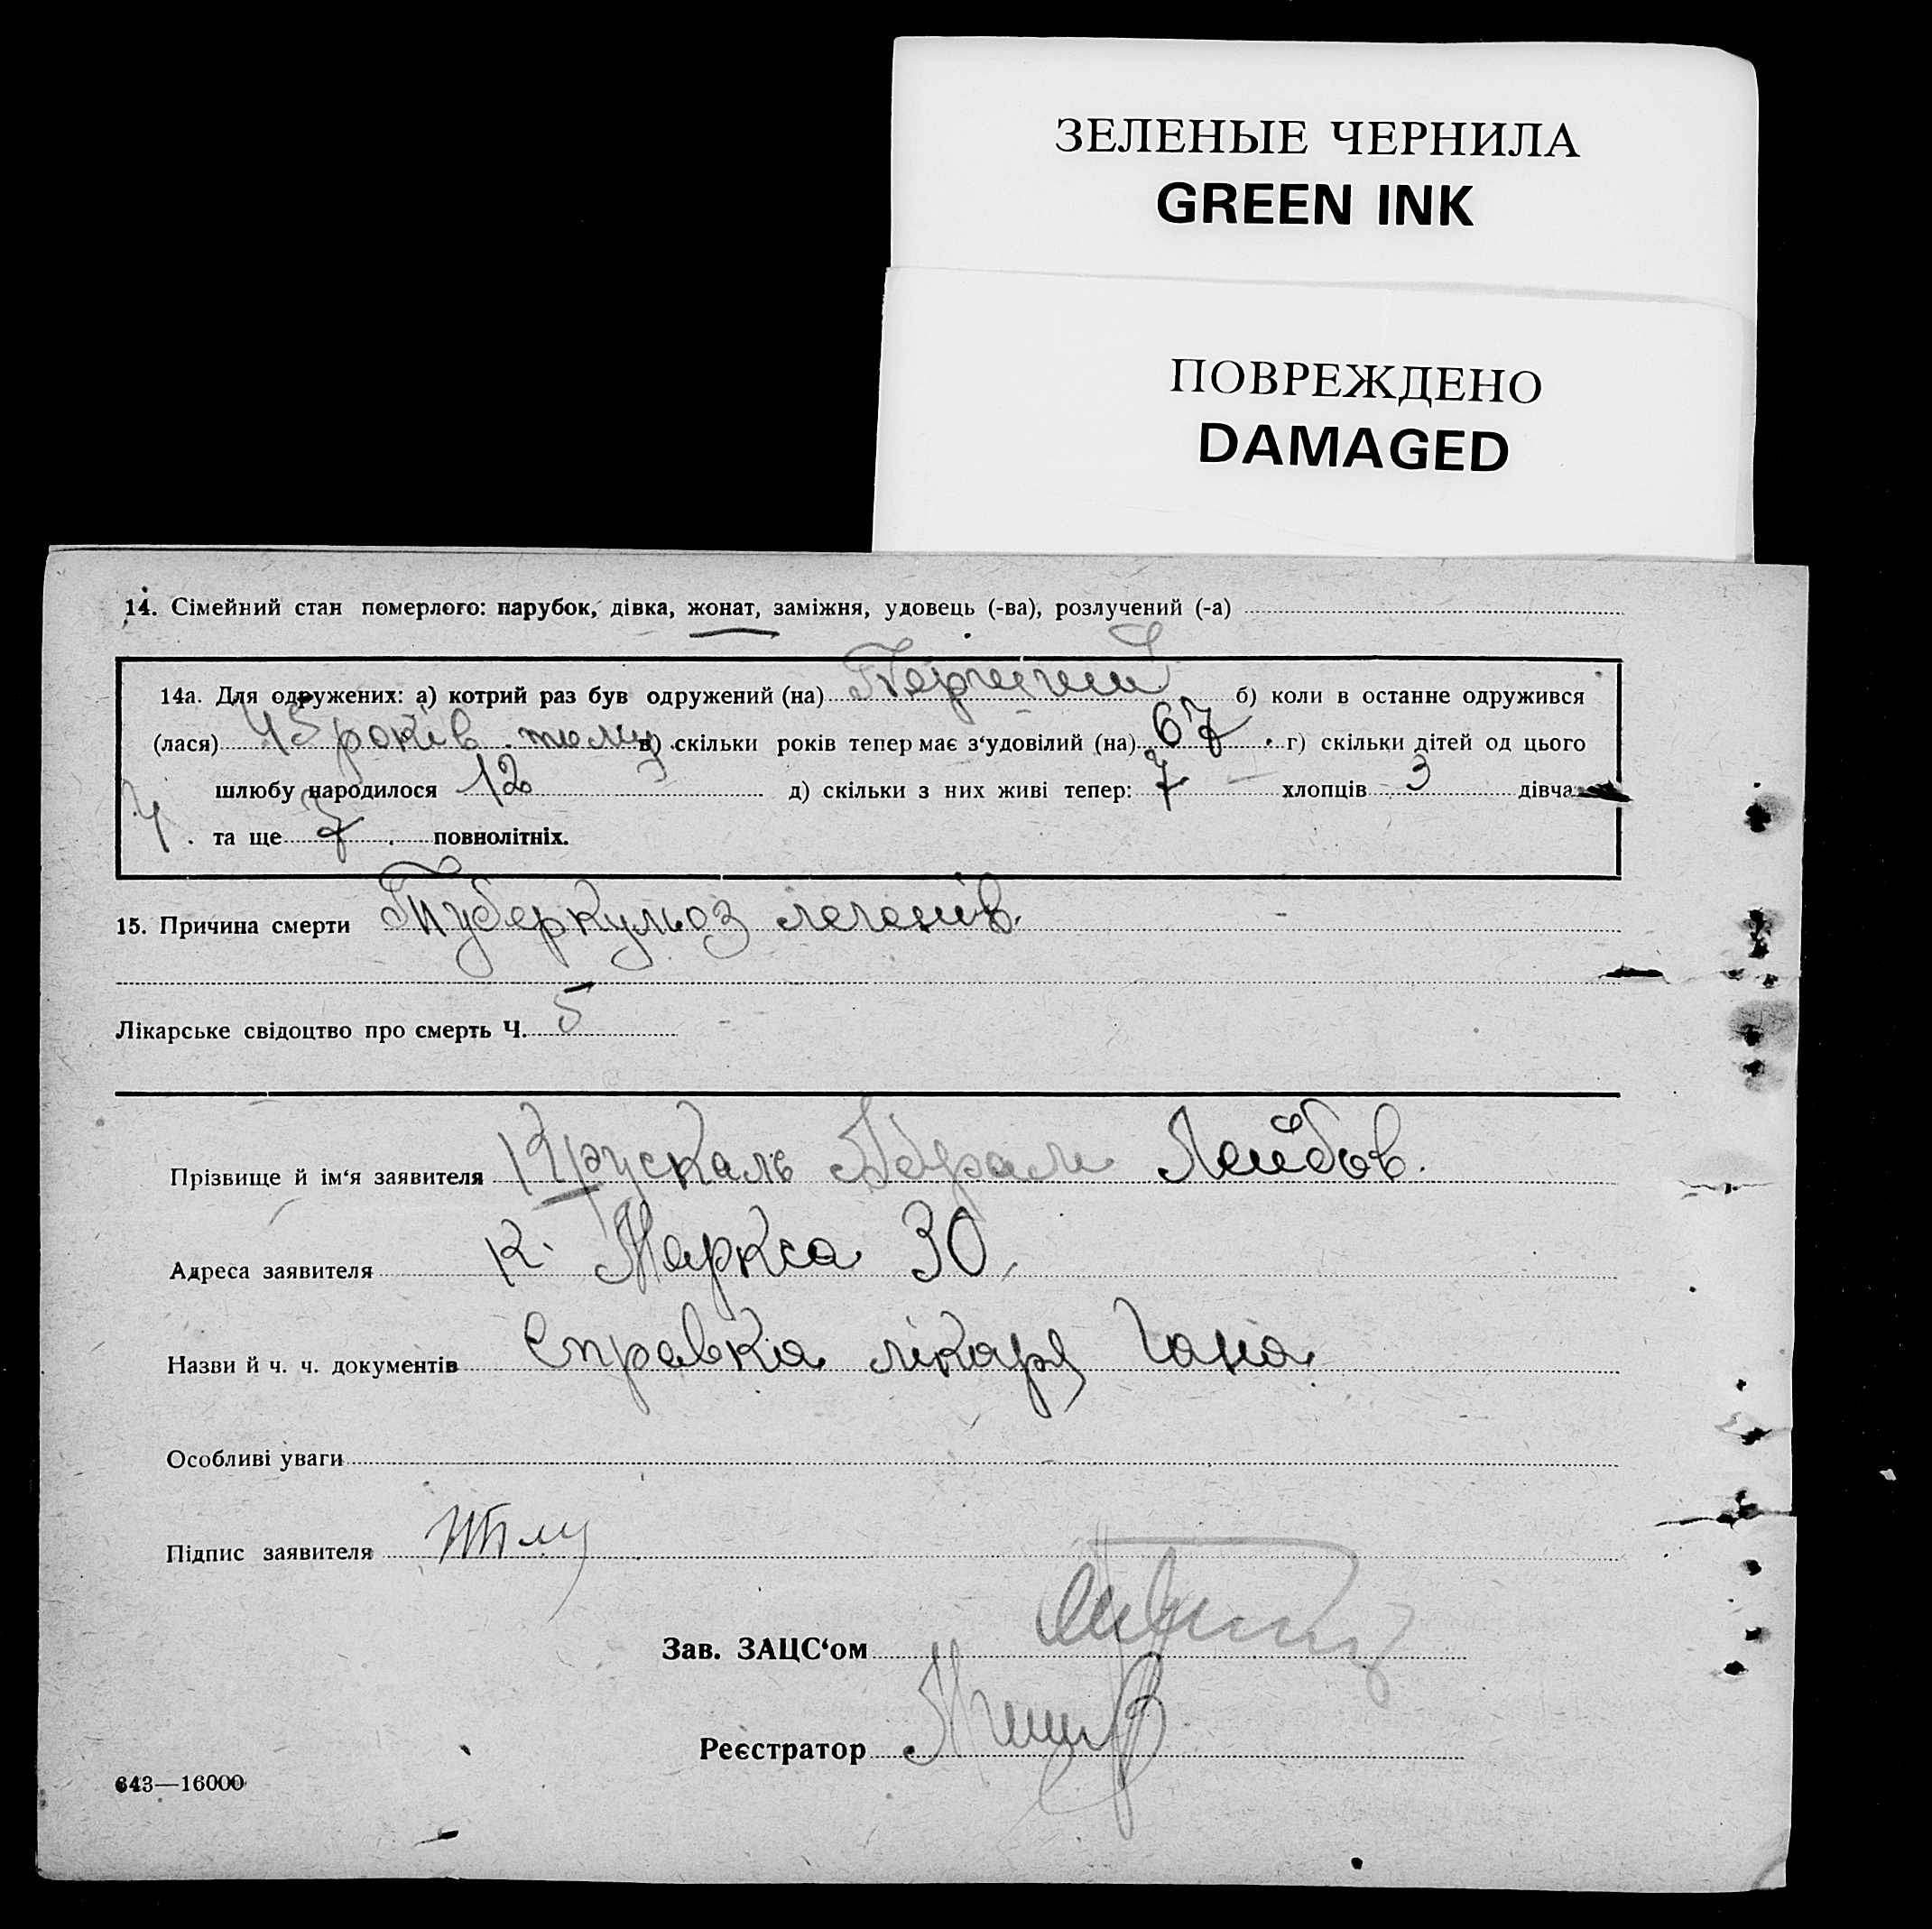 ЗЕЛЕНЫЕ ЧЕРНИЛА
GREEN INK
ПОВРЕЖДЕНО
DAMAGED
14. Сімейний стан померлого: парубок, дівка, жонат, заміжня, удовець (-ва), розлучений (-а)
14а. Для одружених: а) котрий раз був одружений (на) Перший б) коли в останне одружився
(лася) 45 років тому в) скільки років тепер має з'удовілий (на) 67 г) скільки дітей од цього
шлюбу народилося 12 д) скільки з них живі тепер: 7 хлопців 3 дівча
4. та ще 7 повнолітніх.
15. Причина смерти Туберкульоз легенів.
Лікарське свідоцтво про смерть Ч. 5
Прізвище й ім'я заявителя Крускаль Абрам Лейбов.
Адреса заявителя К. Маркса 30.
Назви й ч. ч. документів Справка лікаря Гана
Особливі уваги
Підпис заявителя
Зав. ЗАЦС'ом
Реєстратор
643—16000